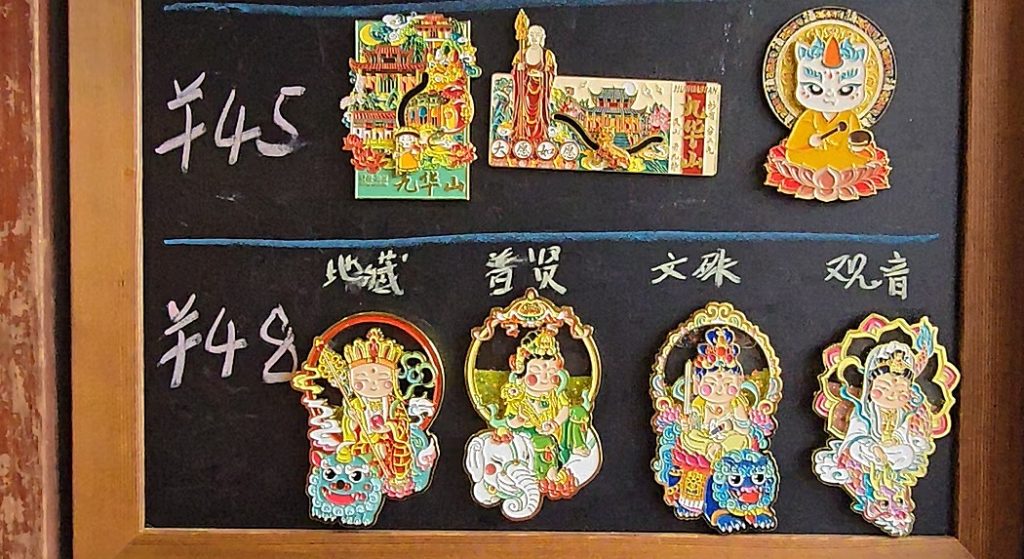 ¥45
九华山
大愿如愿
九华山
¥48
地藏 普贤 文殊 观音